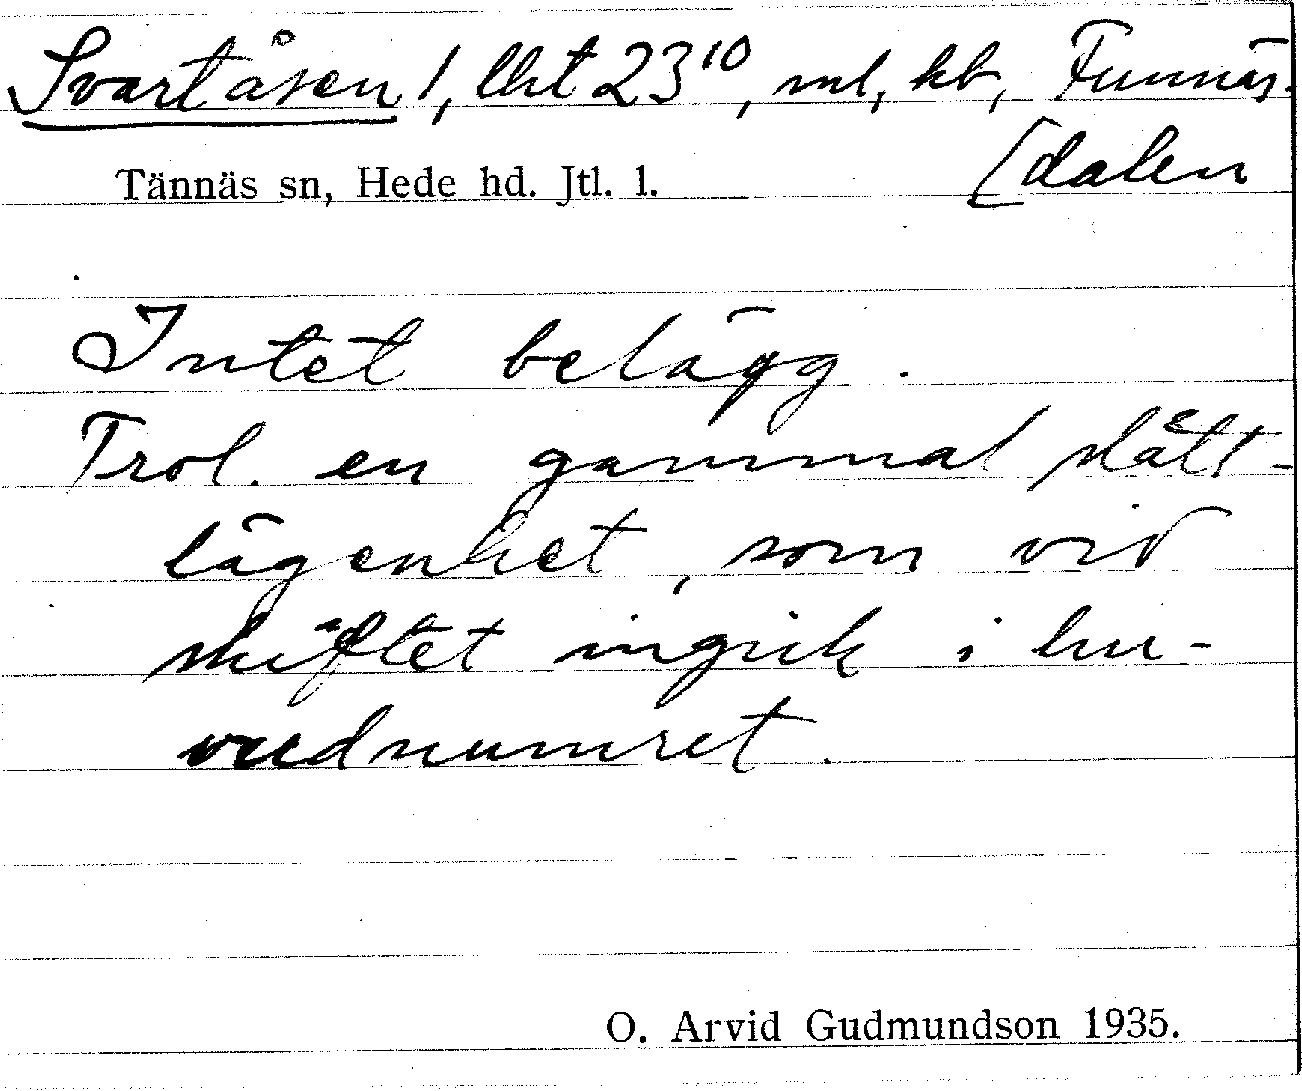 Svartåsen 1, lht 23¹⁰, ml, kb, Funnäs-
[dalen
Tännäs sn, Hede hd. Jtl. l.
Intet belägg.
Trol. en gammal slått-
lägenhet, som vid
skiftet ingick i hu-
vudnumret.
O. Arvid Gudmundson 1935.